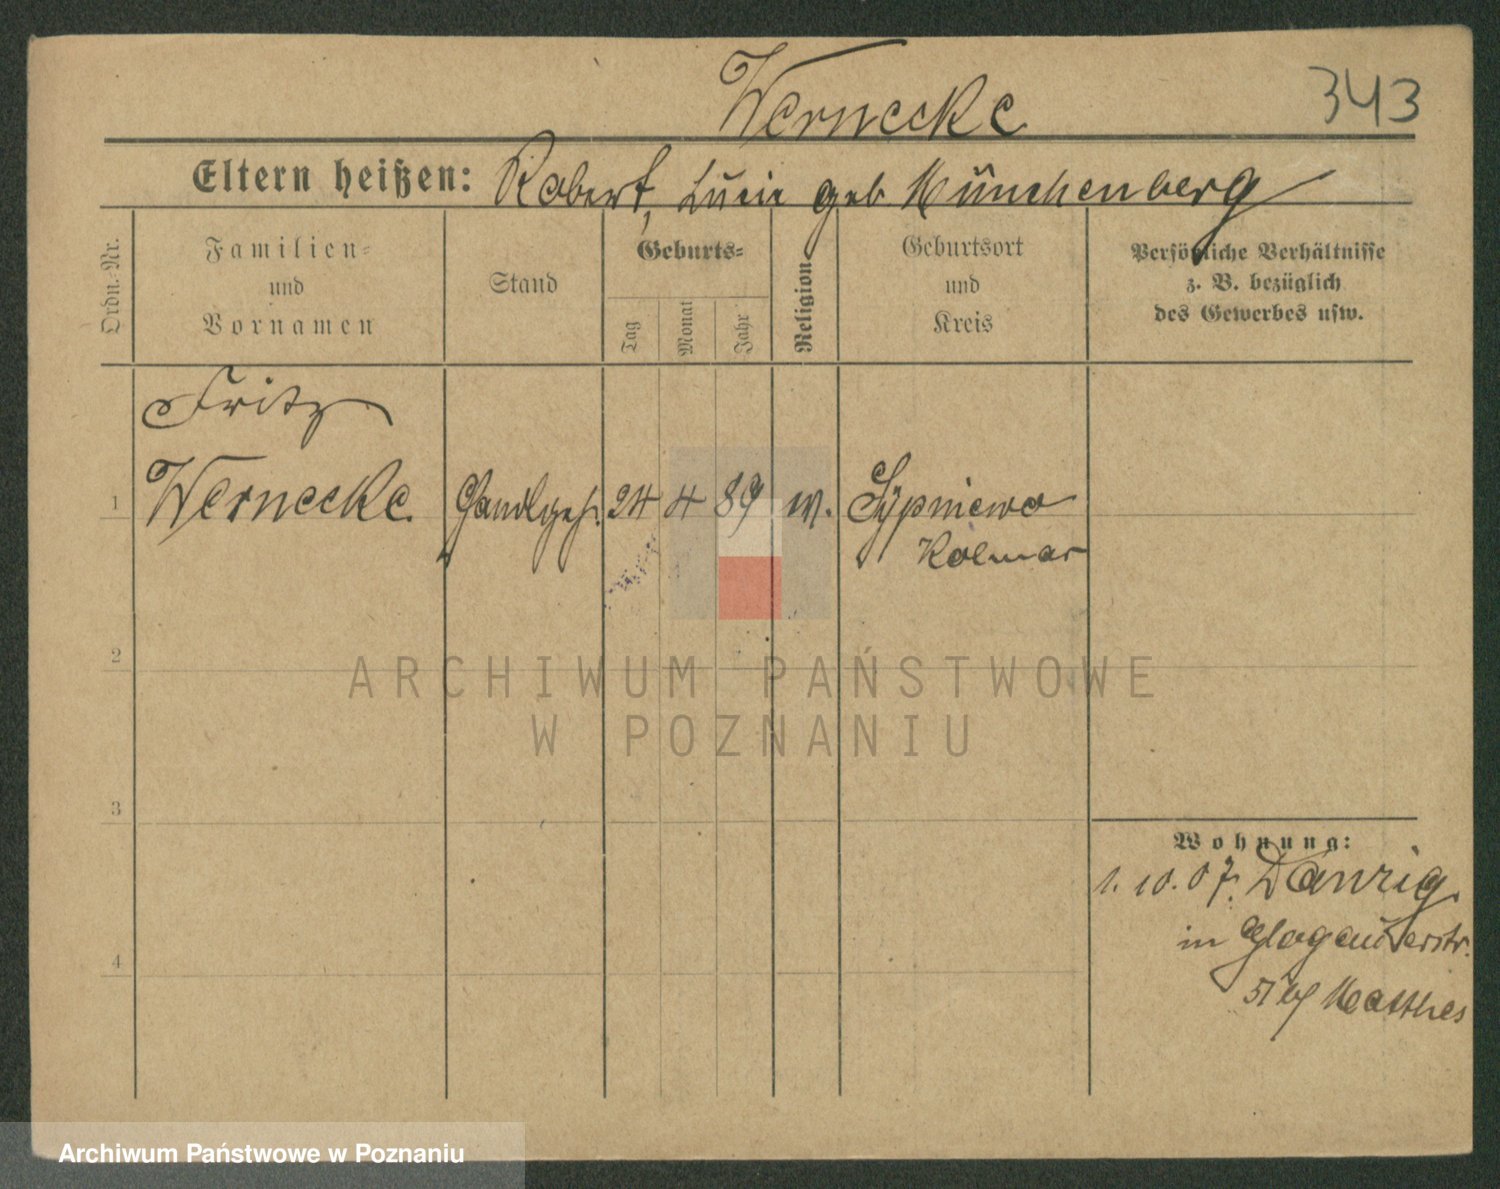 Wernecke
343
Eltern heißen: Robert, Lucie geb Münchenberg
Ordn.-Nr.
Familien-
und
Vornamen
Stand
Geburts-
Tag
Monat
Jahr
Religion
Geburtsort
und
Kreis
Persönliche Verhältnisse
z. B. bezüglich
des Gewerbes usw.
Fritz
1 Wernecke Handlgeh. 24 4 89 Sypniewo
Kolmar
2
3
4
Wohnung:
1.10.07. Danzig
in Glogauerstr.
51 bei Matthes
ARCHIWUM PAŃSTWOWE
W POZNANIU
Archiwum Państwowe w Poznaniu